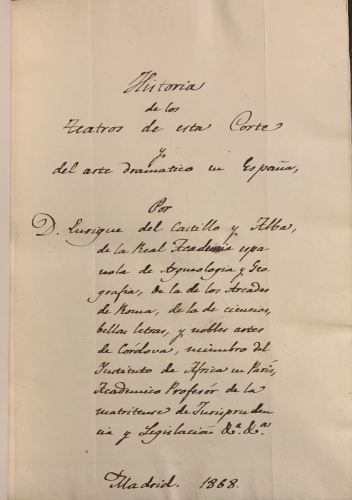 Historia
de los
teatros de esta Corte
y
del arte dramatico en España,
Por
D. Enrique del Castillo y Alba,
de la Real Academia espa-
ñola de Arqueologia y Geo-
grafia, de la de los Arcades
de Roma, de la de ciencias,
bellas letras, y nobles artes
de Córdova, miembro del
Instituto de Africa en Paris,
Academico Profesór de la
matritense de Jurispruden-
cia y Legislacion &.ª &.ª
Madrid. 1868.